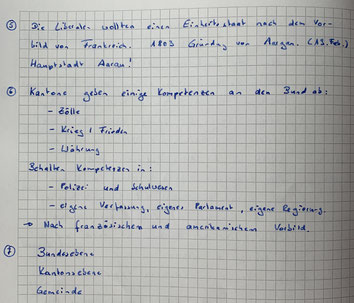 ⑤ Die Liberalen wollten einen Einheitsstaat nach dem Vor-
bild von Frankreich. 1803 Gründung von Aargau. (19. Feb.)
Hauptstadt Aarau!
⑥ Kantone geben einige Kompetenzen an den Bund ab:
- Zölle
- Krieg / Frieden
- Währung
Behalten Kompetenzen in:
- Polizei und Schulwesen
- eigene Verfassung, eigenes Parlament, eigene Regierung.
→ Nach französischem und amerikanischem Vorbild.
⑦ Bundesebene
Kantonsebene
Gemeinde